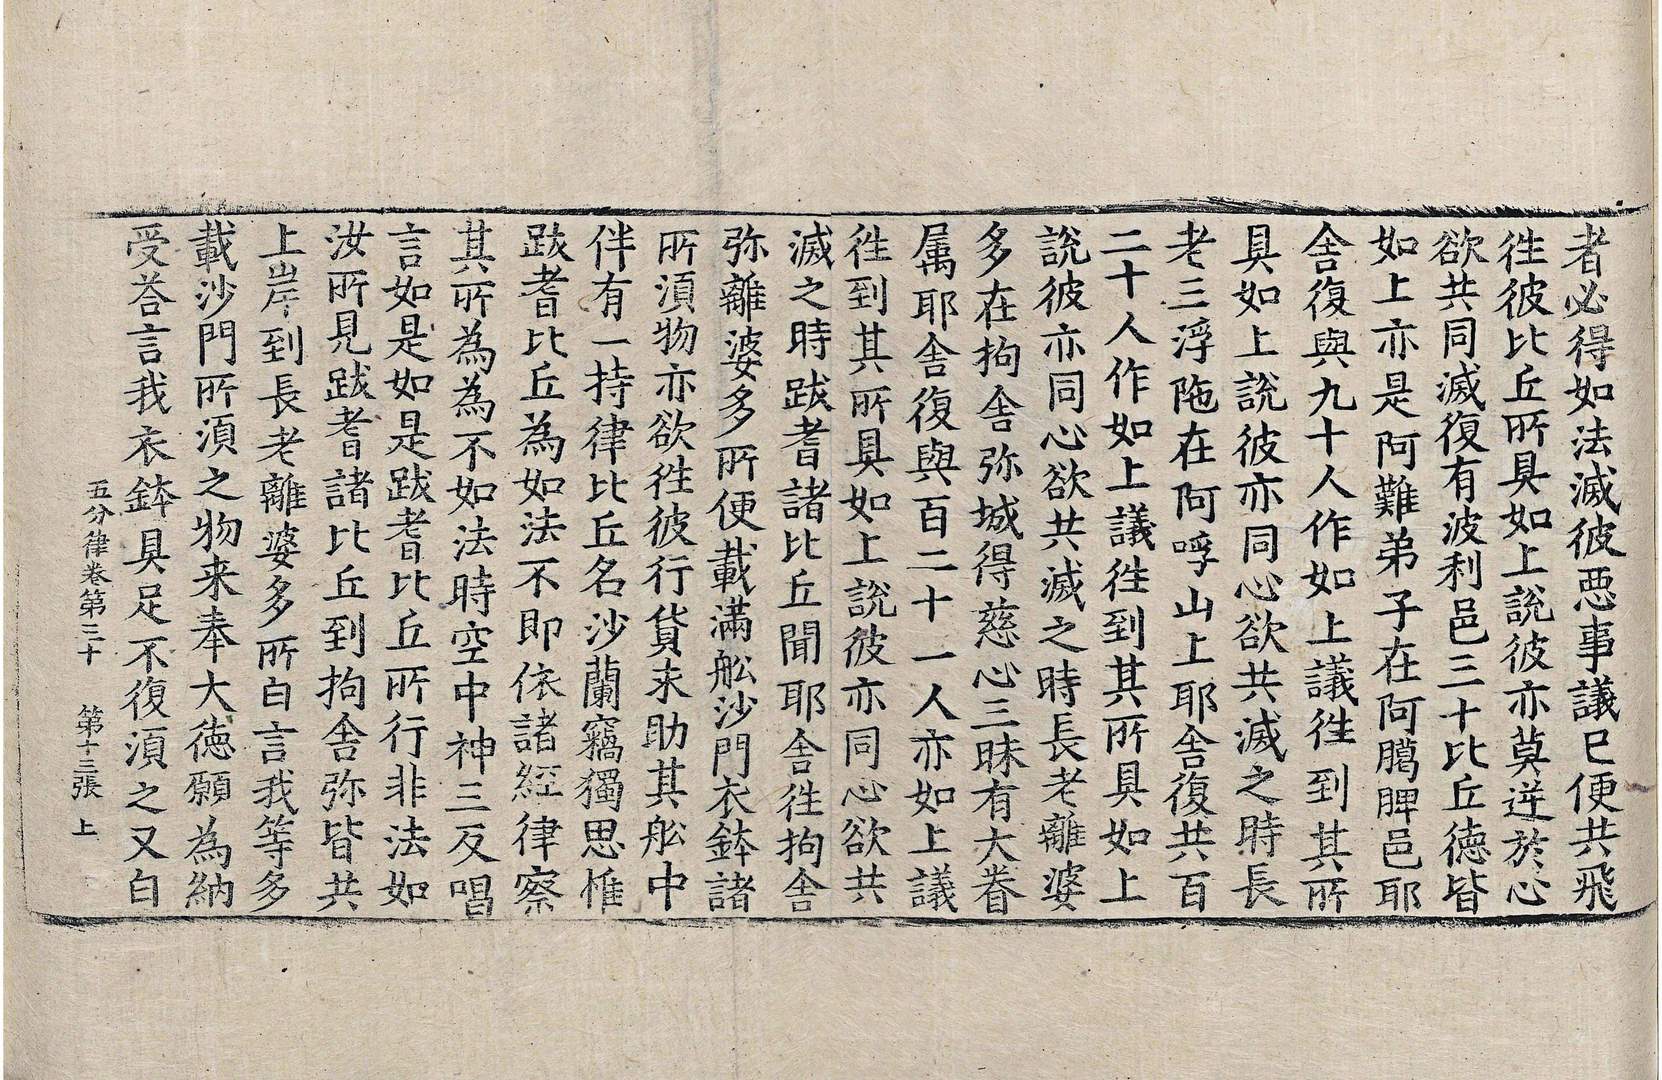 者必得如法滅彼惡事議已便共飛
徃彼比丘所具如上說彼亦莫逆於心
欲共同滅復有波利邑三十比丘德皆
如上亦是阿難弟子在阿䐿脾邑耶
舍復與九十人作如上議徃到其所
具如上說彼亦同心欲共滅之時長
老三浮陁在阿呼山上耶舍復共百
二十人作如上議徃到其所具如上
說彼亦同心欲共滅之時長老離婆
多在拘舍弥城得慈心三昧有大眷
属耶舍復與百二十一人亦如上議
徃到其所具如上說彼亦同心欲共
滅之時跋耆諸比丘聞耶舍徃拘舍
弥離婆多所便載滿舩沙門衣鉢諸
所湏物亦欲徃彼行貨求助其舩中
伴有一持律比丘名沙蘭竊獨思惟
跋耆比丘為如法不即依諸經律察
其所為為不如法時空中神三反唱
言如是如是跋耆比丘所行非法如
汝所見跋耆諸比丘到拘舍弥皆共
上岸到長老離婆多所白言我等多
載沙門所湏之物来奉大徳願為納
受荅言我衣鉢具足不復湏之又白
五分律卷第三十 第十三張 上